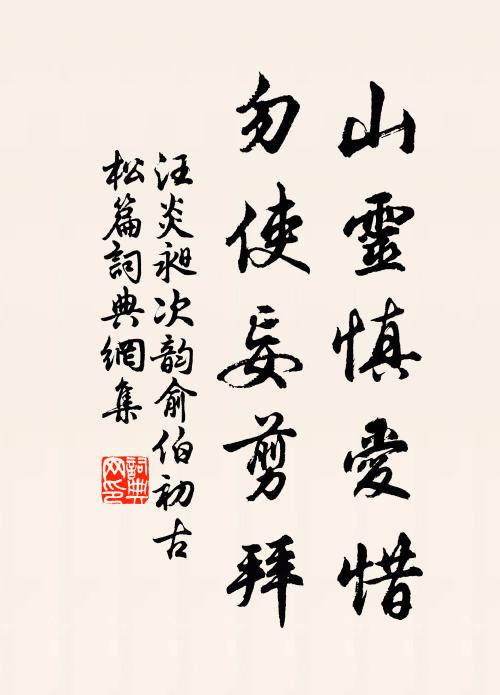 山靈慎愛惜
勿使妄剪拜
汪炎昶次韵俞伯初古
松篇詞典網集
詞典
网印